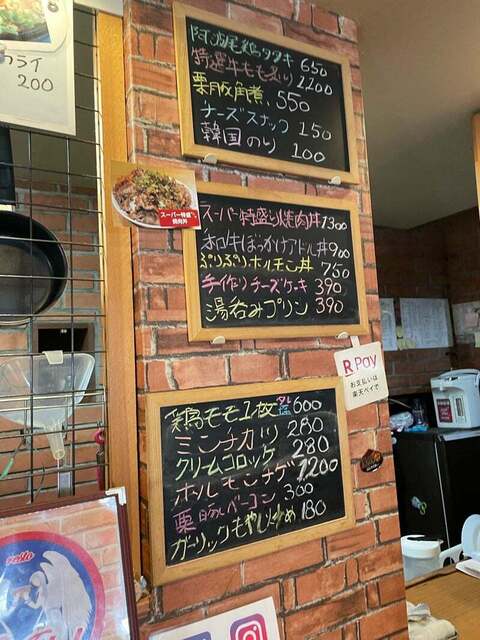 フライ
200
阿波尾鶏タタキ 650
特選牛もも炙り 1200
栗豚角煮 550
チーズスナック 150
韓国のり 100
スーパー特盛り焼肉丼 1300
スーパー特盛
焼肉丼
ホロ牛ぼっかけアドル丼 900
ぷりぷりホルモン丼 750
手作りチーズケーキ 390
湯呑みプリン 390
R Pay
お支払いは
楽天ペイで
鶏もも1枚 タレ 塩 600
ミンチカツ 280
クリームコロッケ 280
ホルモンチゲ 1200
栗豚ベーコン 300
ガーリックもやし炒め 180